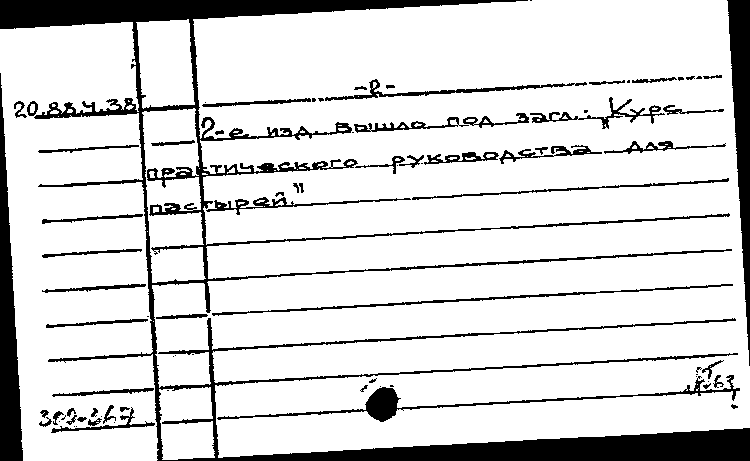 -2-
20.88.4.38
2-е изд. вышло под загл.: „Курс
практического руководства для
пастырей."
309-367